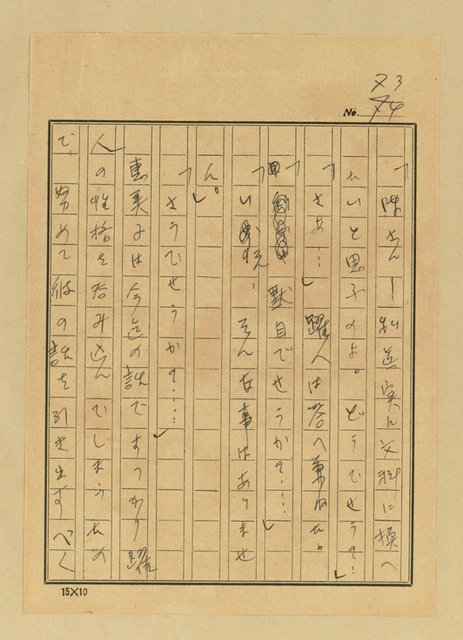 73
74
No.
「陳さん！私真実に文科に換へ
たいと思ふのよ。どうでせう？…
「さあ…」躍人は答へ兼ねた。
「默目でせうか？……」
「い、そんな事はありませ
ん。」
「さうでせうか？……」
恵美子は今迄の話ですつかり躍
人の性格を呑み込んでしまうため
で、努めて彼の話を引き出すべく
15X10